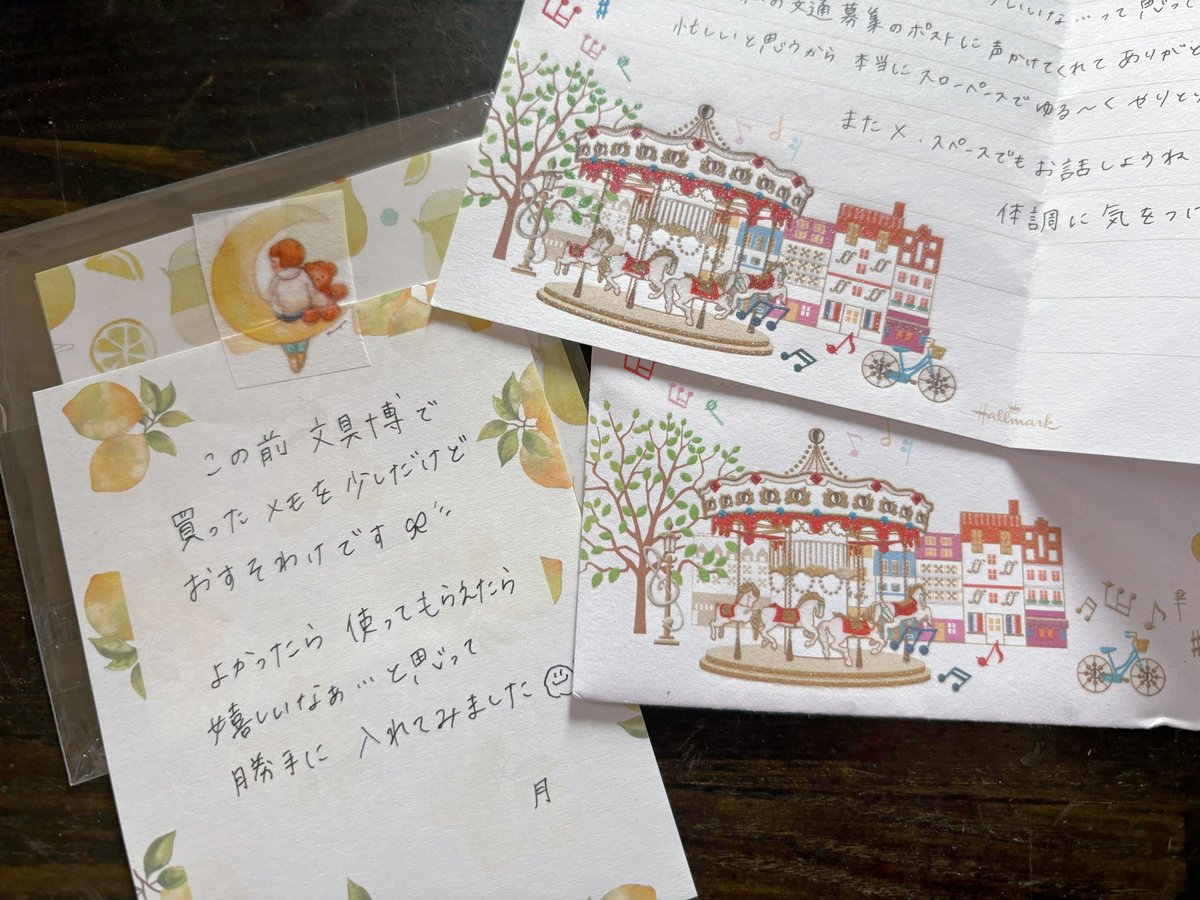 いいな…って思って
文通募集のポストに声かけてくれてありがと
忙しいと思うから本当にスローペースでゆる〜くやりと
またX、スペースでもお話しようね
体調に気をつけ
Hallmark
この前文具博で
買ったメモを少しだけど
おすそわけです
よかったら使ってもらえたら
嬉しいなぁ…と思って
勝手に入れてみました
月